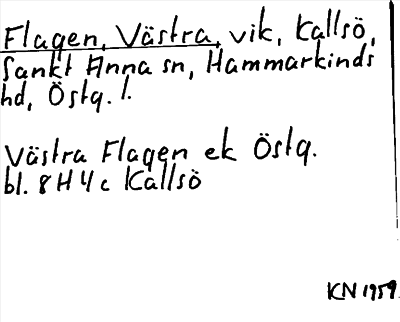 Flagen, Västra, vik, Kallsö,
Sankt Anna sn, Hammarkinds
hd, Östg. l.
Västra Flagen ek Östg.
bl. 8 H 4 c Kallsö
KN 1959